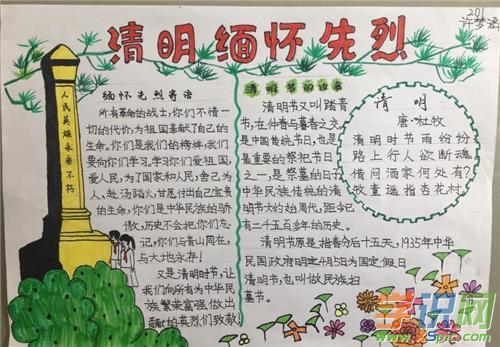 201
许梦涵
清明缅怀先烈
人民英雄永垂不朽
缅怀先烈寄语
所有革命的战士,你们不惜一
切的代价,为祖国奉献了自己的生
命。你们是我们的榜样,我们
要向你们学习。学习你们爱祖国,
爱人民,为了国家和人民,舍己为
人、赴汤蹈火,甘愿付出自己宝贵
的生命,你们是中华民族的骄
傲,历史不会把你们忘
记,你们与青山同在,
与大地永存!
又是清明时节,让
我们向所有为中华民
族繁荣富强,做出
贡献的英烈们致敬
清明节的由来
清明节又叫踏青
节,在仲春与暮春之交,
是中国传统节日,也是
最重要的祭祀节日
之一,是祭墓的日子
中华民族传统的清
明节大约始周代,距今已
有二千五百多年的历史。
清明节原是指春分后十五天,1935年中华
民国政府明定4月5日为国定假日
清明节,也叫做民族扫
墓节。
清明
唐·杜牧
清明时节雨纷纷
路上行人欲断魂
借问酒家何处有?
牧童遥指杏花村
学识网